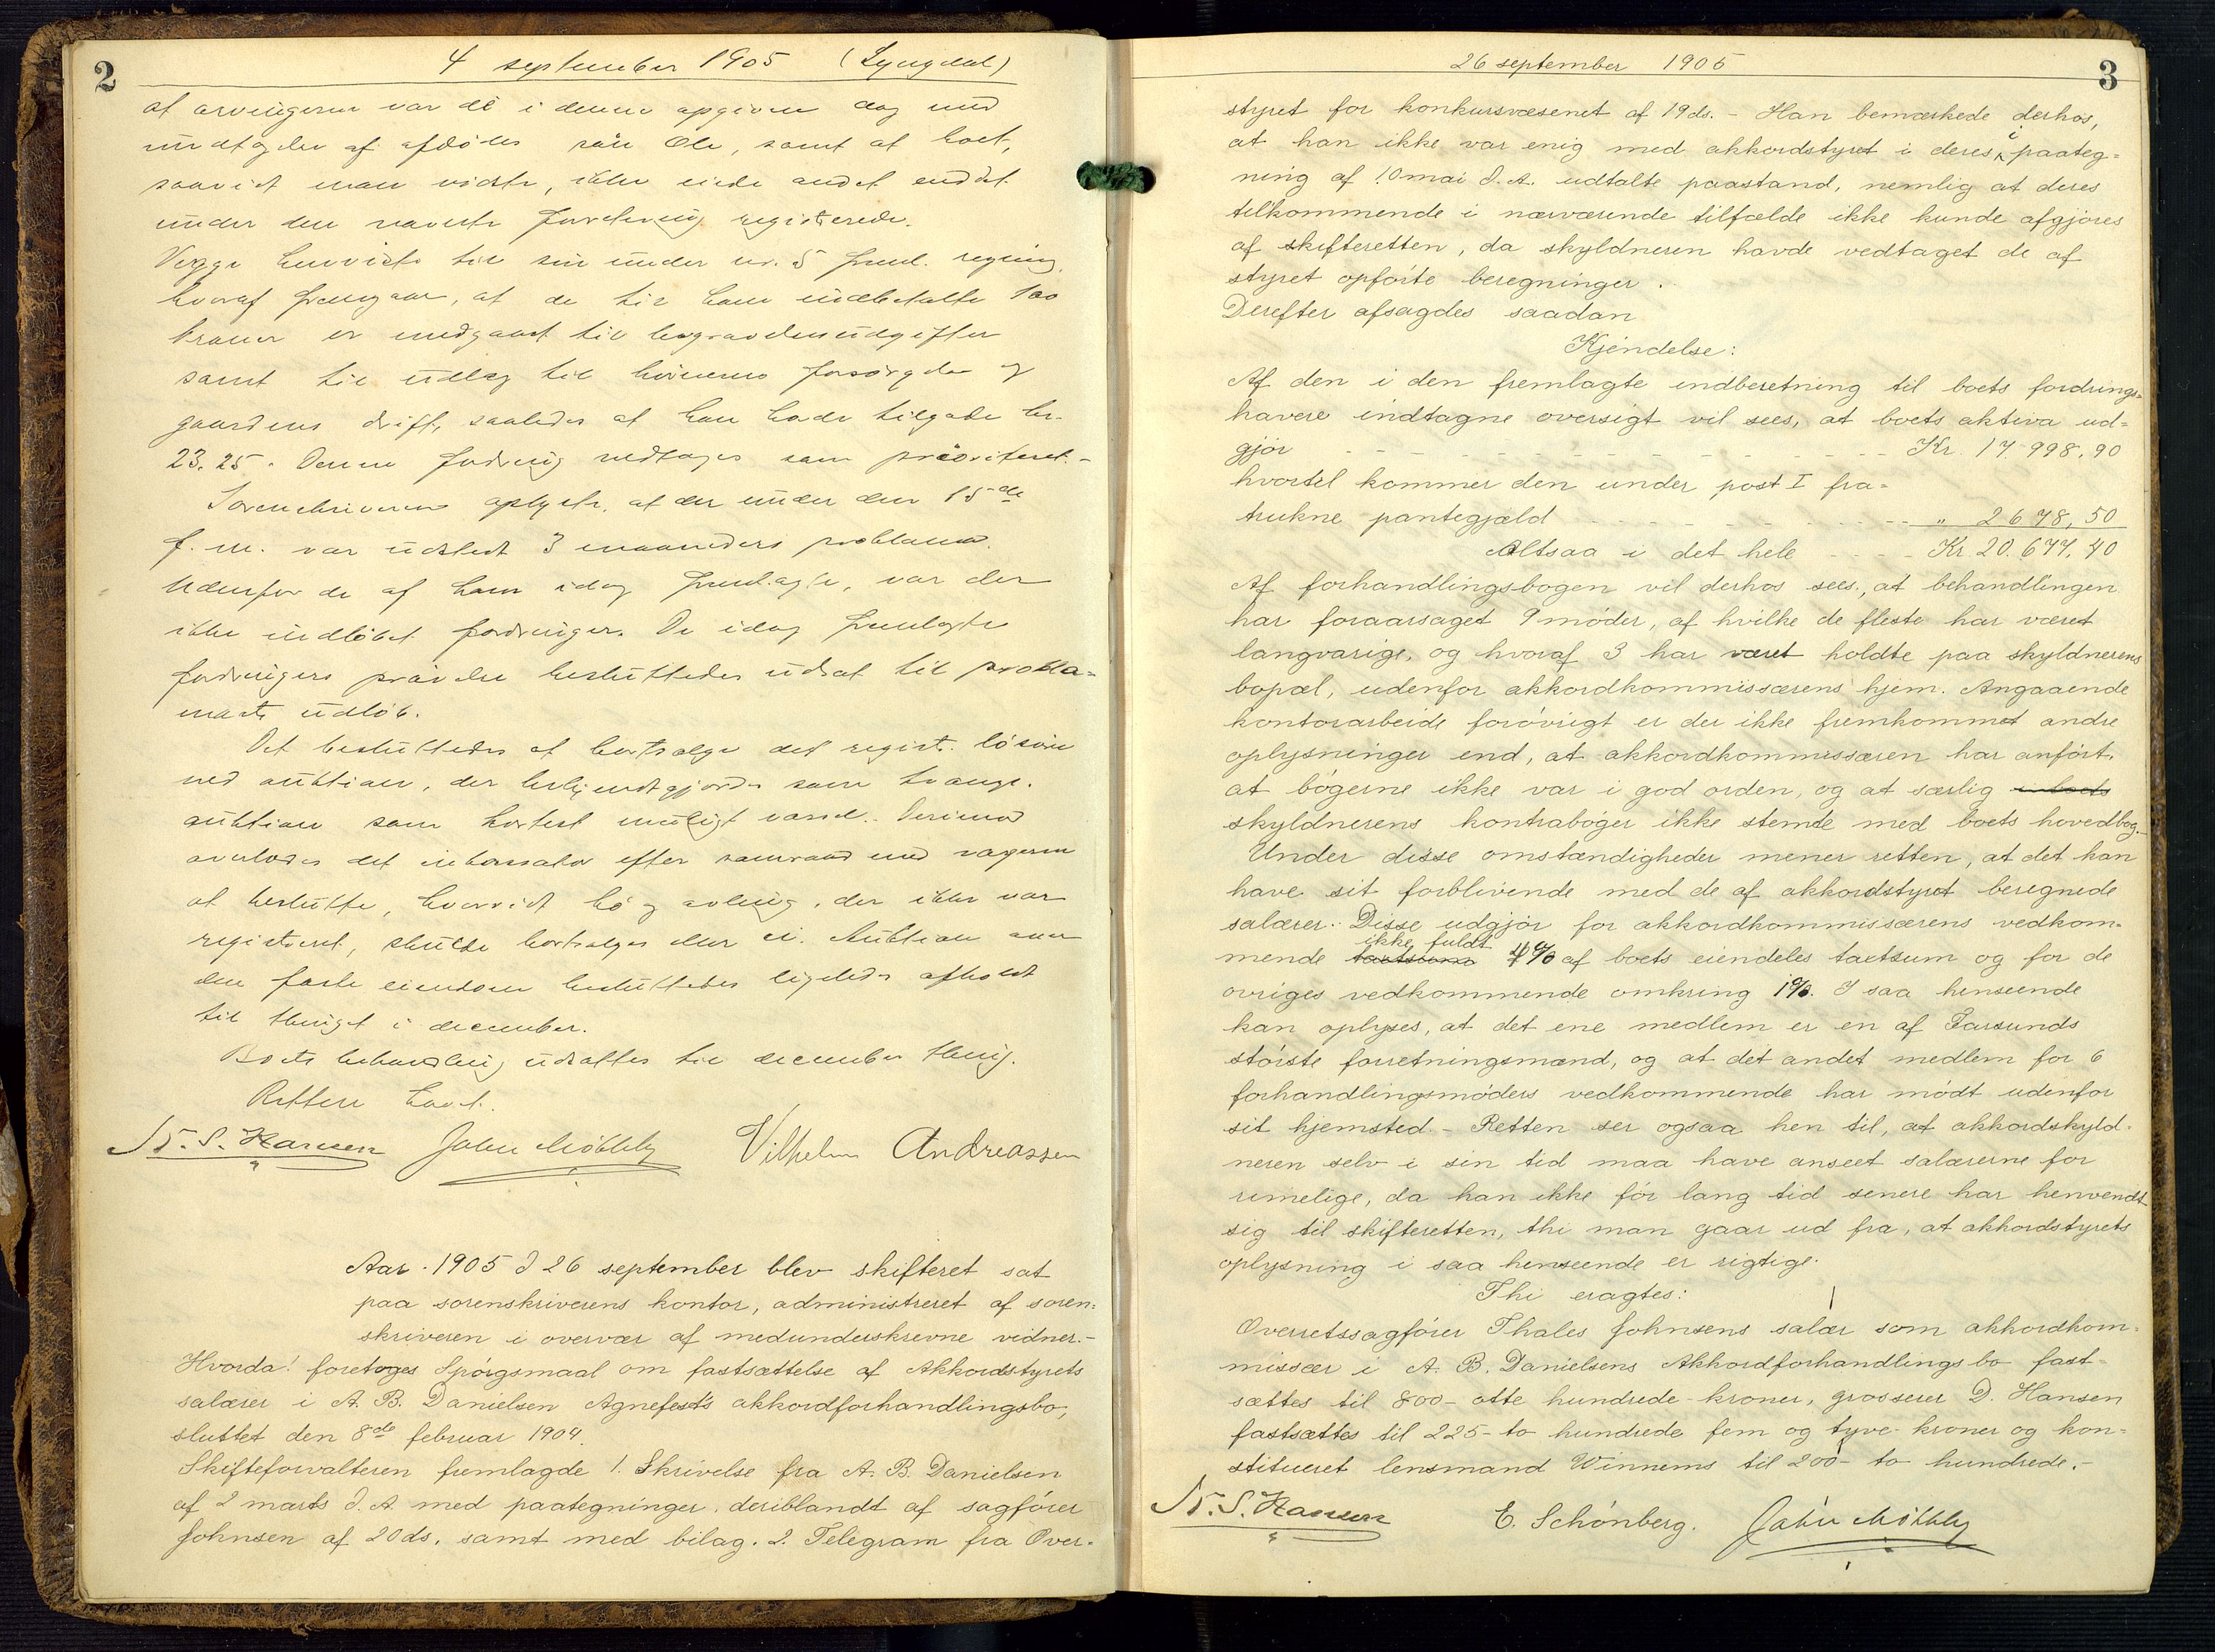 2
4 september 1905 (Lyngdal)
at arvingerne var de i denne opgivne dog med
undtagelse af afdødes sön Ole, samt at boet,
saavidt man vidste, ikke eiede andet end det
under den nævnte forretning registerede.
Vegge henviste til sin under nr. 5 freml. regning,
hvoraf fremgaar, at de til ham indbetalte 100
kroner er medgaaet til begravelsesudgifter
samt til udlæg til börnenes forsörgelse og
gaardens drift, saaledes at han havde tilgode kr.
23.25. Denne fordring vedtages som prioriteret. -
Sorenskriveren oplyste, at der under den 15de
f. m. var udstedt 3 maaneders proklama.
Udenfor de af ham idag fremlagte, var der
ikke indlöbet fordringer. De idag fremlagte
fordringers prövelse besluttedes udsat til prokla-
mats udlöb.
Det besluttedes at bortsælge det regist. lösöre
ved auktion, der bekjendtgjordes som tvangs-
auktion som hortest muligt varsel. Derimod
overlodes det inkassator efter samraad med vægeren
at beslutte, hvorvidt hö og avling, der ikke var
registreret, skulde bortsælges eller ei. Auktion over
den faste eiendom besluttedes ligeledes afholdt
til thinget i december.
Boets behandling udsattes til december thing.
Retten hævet.
N. S. Hansen John Mökleby Vilhelm Andreassen
Aar 1905 d 26 september blev skifteret sat
paa sorenskriverens kontor, administreret af soren-
skriveren i overvær af medunderskrevne vidner.-
Hvorda! foretoges Spórgsmaal om fastsættelse af Akkordstyrets
salærer i A. B. Danielsen Agnefest's akkordforhandlingsbo,
sluttet den 8de februar 1904.
Skifteforvalteren fremlagde 1. Skrivelse fra A. B. Danielsen
af 2 marts d. A. med paategninger, deriblandt af sagfórer
Johnsen af 20 ds. samt med bilag. 2. Telegram fra Over-
26 september 1905
3
styret for konkursvæsenet af 19 ds. - Han bemærkede derhos,
at han ikke var enig med akkordstyret i deres i paateg-
ning af 10 mai d. A. udtalte paastand, nemlig at deres
tilkommende i nærværende tilfælde ikke kunde afgjöres
af skifteretten, da skyldneren havde vedtaget de af
styret opförte beregninger.
Derefter afsagdes saadan
Kjendelse:
Af den i den fremlagte indberetning til boets fordrings-
havere indtagne oversigt vil sees, at boets aktiva ud-
gjór - - - Kr. 17.998,90
hvortil kommer den under post I fra-
trukne pantegjæld - - - " 2678,50
Altsaa i det hele - - - Kr. 20.677,40
Af forhandlingsbogen vil derhos sees, at behandlingen
har foraarsaget 9 móder, af hvilke de fleste har været
langvarige, og hvoraf 3 har været holdte paa skyldnerens
bopæl, udenfor akkordkommissærens hjem. Angaaende
kontorarbeide forövrigt er der ikke fremkommet andre
oplysninger end, at akkordkommissæren har anfórt,
at bógerne ikke var i god orden, og at særlig
skyldnerens kontrabóger ikke stemte med boets hovedbog.-
Under disse omstændigheder mener retten, at det kan
have sit forblivende med de af akkordstyret beregnede
salærer. Disse udgjór for akkordkommissærens vedkom-
mende ikke fuldt 4% af boets eiendeles taxtsum og for de
ovriges vedkommende omkring 1%. I saa henseende
kan oplyses, at det ene medlem er en af Farsunds
störste forretningsmænd, og at det andet medlem for 6
forhandlingsmóders vedkommende har mödt udenfor
sit hjemsted. - Retten ser ogsaa hen til, at akkordskyld-
neren selv i sin tid maa have anseet salærerne for
rimelige, da han ikke fór lang tid senere har henvendt
sig til skifteretten, thi man gaar ud fra, at akkordstyrets
oplysning i saa henseende er rigtige.
Thi eragtes:
Overretssagfórer Thales Johnsens salær som akkordkom-
missær i A. B. Danielsens Akkordforhandlingsbo fast-
sættes til 800 - otte hundrede - kroner, grosserer D. Hansen
fastsættes til 225 - to hundrede fem og tyve - kroner og kon-
stitueret lensmand Winnems til 200 - to hundrede.-
N. S. Hansen E. Schónberg. John Mökleby